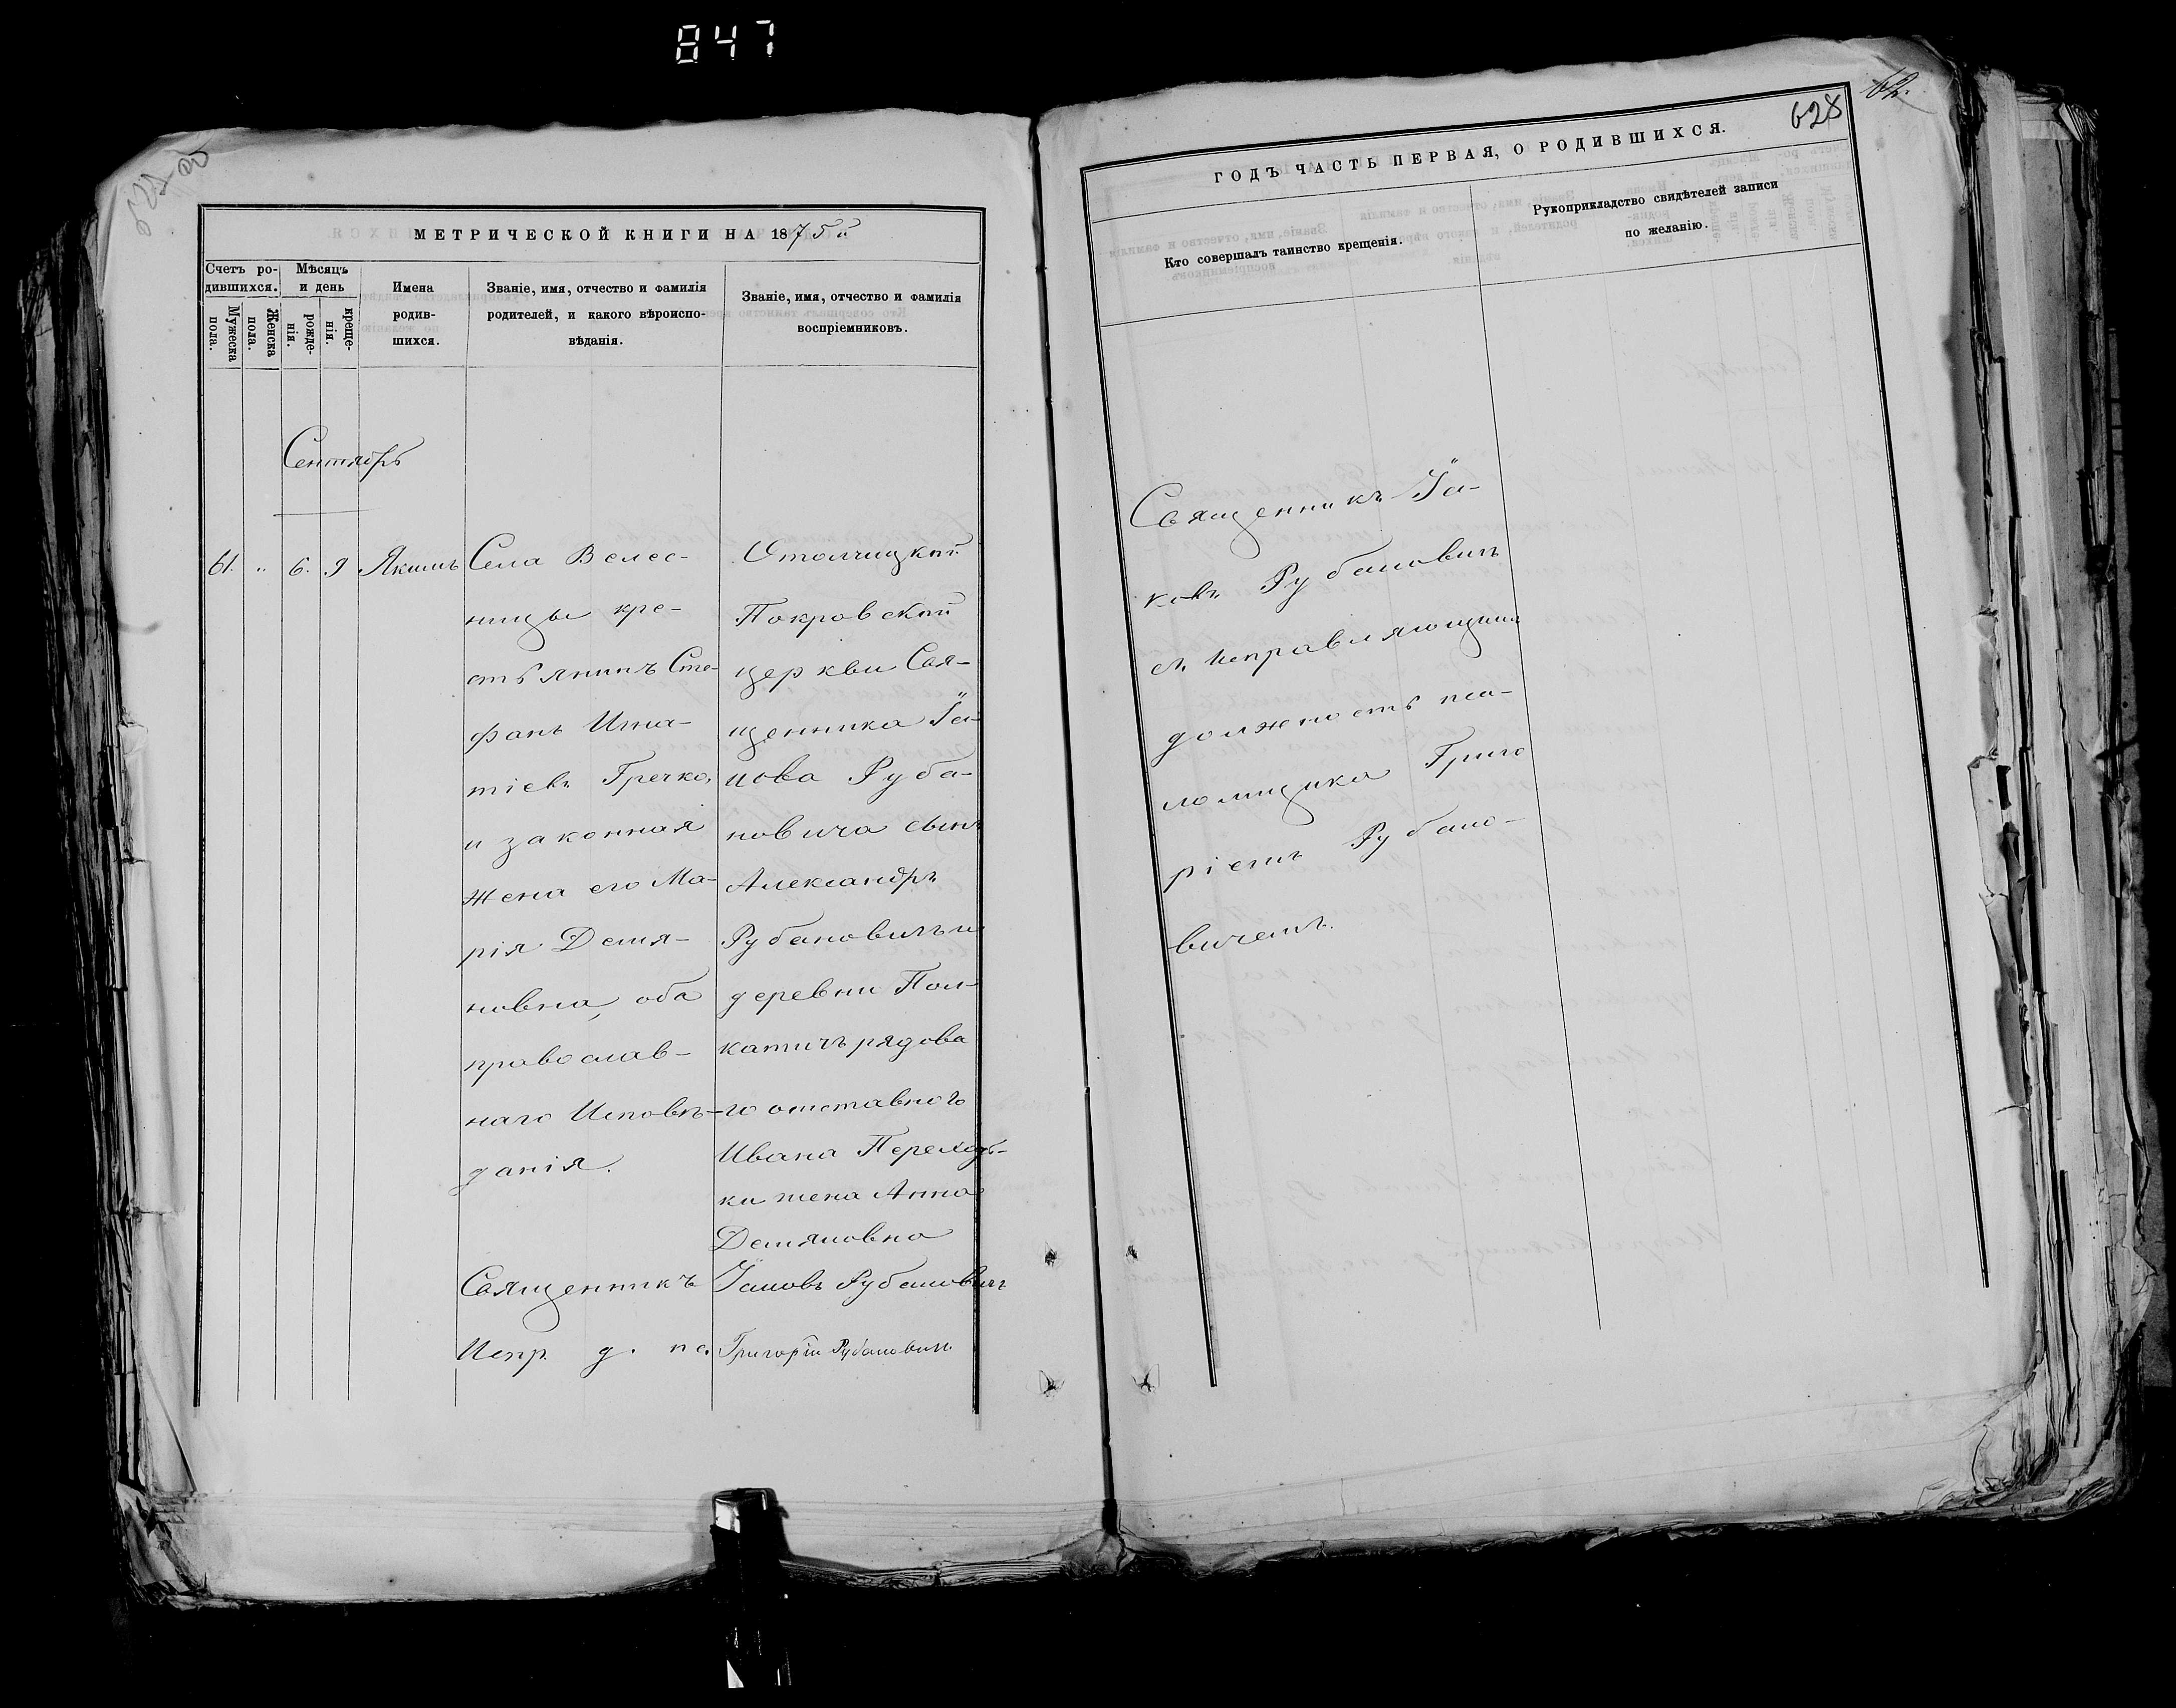 847
627 об
МЕТРИЧЕСКОЙ КНИГИ НА 1875й
Счетъ ро-
дившихся.
Мужеска
пола.
Женска
пола.
Мѣсяцъ
и день
рожде-
нія.
креще-
нія.
Имена
родив-
шихся.
Званіе, имя, отчество и фамилія
родителей, и какого вѣроиспо-
вѣданія.
Званіе, имя, отчество и фамилія
воспріемниковъ.
Сентябрь
61. „ 6. 9 Якимъ
Села Велес-
ницы кре-
стьянинъ Сте-
фанъ Игна-
тіевъ Гречко,
и законная
жена его Ма-
рія Демя-
новна, оба
православ-
наго Исповѣ-
данія.
Столчицкой
Покровской
церкви Свя-
щенника Іа-
кова Руба-
новича сынъ
Александръ
Рубановичъ и
деревни Пол-
катичъ рядова
го отставного
Ивана Переходь-
ки жена Анна
Демяновна
Священникъ Іаковъ Рубановичъ
Испр. д. пс. Григорій Рубановичъ
62.
628
ГОДЪ ЧАСТЬ ПЕРВАЯ, О РОДИВШИХСЯ.
Кто совершалъ таинство крещенія.
Рукоприкладство свидѣтелей записи
по желанію.
Священникъ Іа-
ковъ Рубановичъ
съ исправляющимъ
должность пса-
ломщика Григо
ріемъ Рубано-
вичемъ.